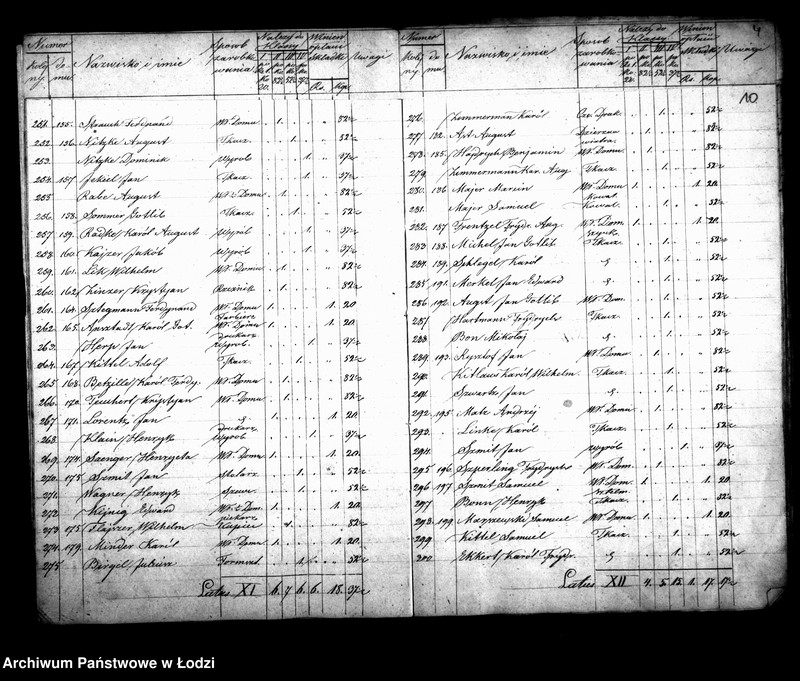 10
Numer
Nazwisko i imie
Sposob zarobkowania
Należy do Klassy
Winien opłaci składki
Uwagi
I II III IV
Rs. Kop.
251. 155. Strauch Ferdynand Wł. Domu 1. 82½
252. 156. Nitzke August Tkacz 1. 52½
253. Nitzke Dominik Wyrob. 1. 37½
254. 157. Jekiel Jan Tkacz 1. 37½
255. Rabe August Wł. Domu 1. 82½
256. 158. Sommer Gotlib Tkacz 1. 52½
257. 159. Radke Karól August Wyrób. 1. 37½
258. 160. Kajzer Jakób Wyrob. 1. 37½
259. 161. Lik Wilhelm Wł. Domu 1. 82½
260. 162. Cinzer Krystyan Rzeźnik 1. 82½
261. 164. Sztegmann Ferdynand Wł. Domu 1. 1. 20
262. 165. Anstadt Karól Got. Wł. Domu 1. 1. 20
263. Herze Jan Wyrob. 1. 37½
264. 167. Kittel Adolf Tkacz 1. 52½
265. 168. Karól Ferdy. Wł. Domu 1. 82½
266. 170. Teuchert Krystyan Wł. Domu 1. 82½
267. 171. Lorentz Jan 1. 1. 20
268. Klain Henryk Wyrob 1. 37½
269. 174. Saenger Henryeta Wł. Domu 1. 1. 20
270. 175. Szmit Jan Stolarz 1. 52½
271. Wagner Henryk Szewc 1. 52½
272. Kejnig Edward Wł. Dom. 1. 1. 20
273. 175. Wilhelm Kupiec 1. 82½
274. 179. Minder Karól Wł. Domu 1. 1. 20
275. Birgel Juliusz 1. 52½
Latus XI 6. 7. 6. 6. 18. 37½
Numer
Nazwisko i imie
Sposob zarobkowania
Należy do Klassy
Winien opłaci składki
Uwagi
I II III IV
Rs. Kop.
276. Zimmerman Karól Cze. Druk. 1. 52½
277. 182. Art August 1. 82½
278. 185. Hajdrych Benjamin Wł. Domu 1. 82½
279. Zimmermann Kar. Aug Tkacz 1. 52½
280. 186. Majer Marcin Wł. Domu 1. 1. 20
281. Majer Samuel Kowal 1. 52½
282. 187. Frentzel Fryde. Aug. Wł. Dom. 1. 1. 20
283. 188. Michel Jan Gotlib Tkacz 1. 52½
284. 189. Schlegel Karól 1. 52½
285. 191. Merkel Jan Edward 1. 52½
286. 192. August Jan Gotlib Wł. Dom. 1. 82½
287. Hartmann Frydrych Tkacz 1. 52½
288. Bon Mikołaj 1. 52½
289. 193. Jan Wł. Domu 1. 82½
290. Karól Wilhelm Tkacz 1. 52½
291. Szwartz Jan 1. 52½
292. 195. Mate Andrzej Wł. Domu 1. 82½
293. Linke Karól Tkacz 1. 52½
294. Szmit Jan Wyrób 1. 37½
295. 196. Szperling Frydrych Wł. Dom. 1. 82½
296. 197. Szmit Samuel Wł. Dom 1. 1. 20
297. Bonn Henryk Tkacz 1. 52½
298. 199. Samuel Wł. Domu 1. 1. 20
299. Kittel Samuel Tkacz 1. 52½
300. Ekkert Karól Frydr. 1. 52½
Latus XII 4. 5. 15. 1. 17. 17½
Archiwum Państwowe w Łodzi